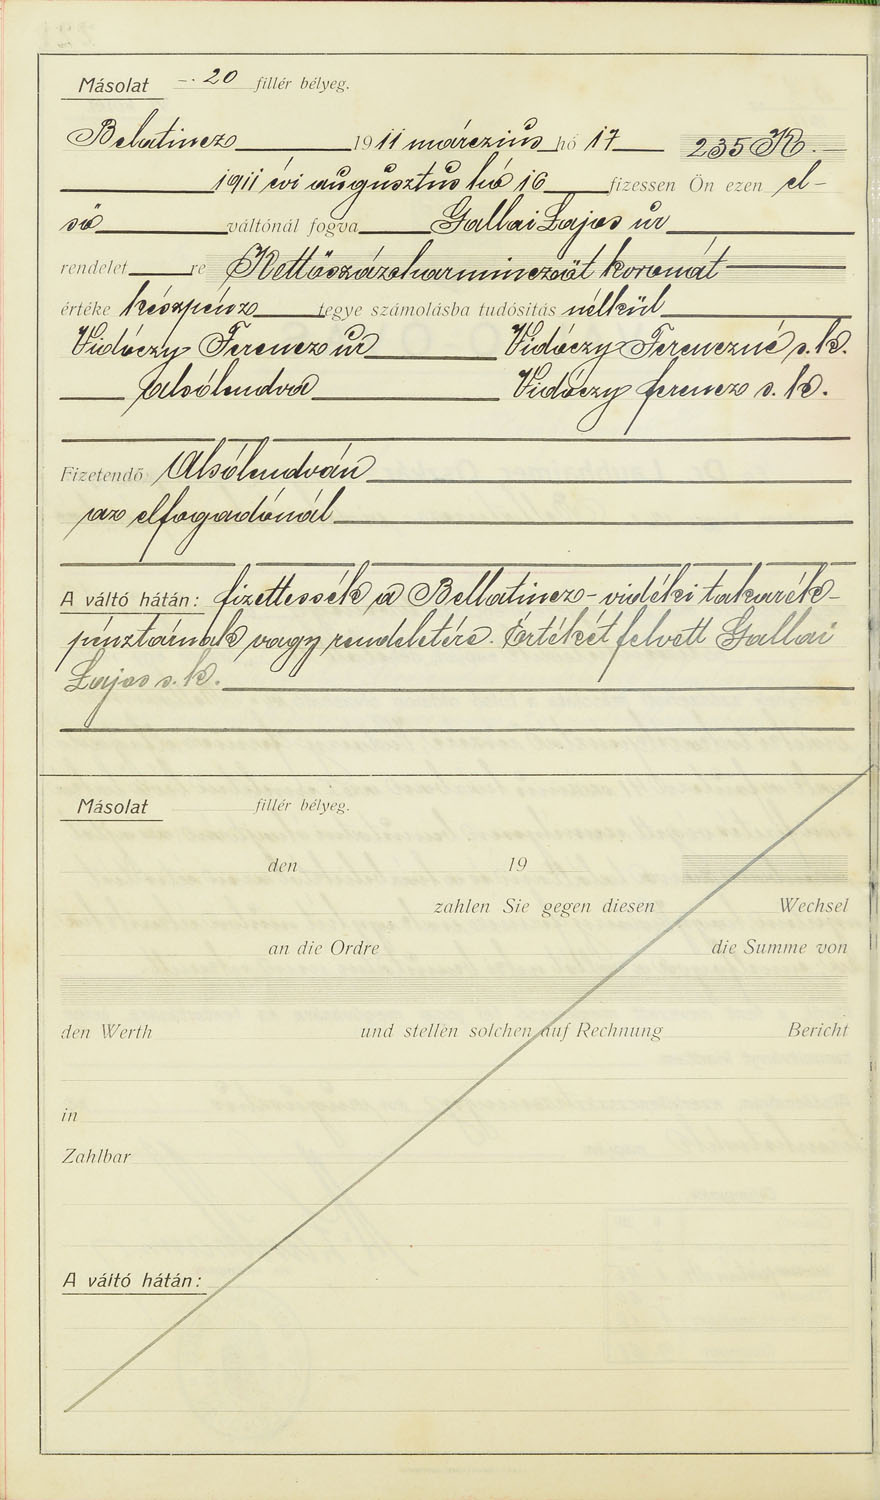 Másolat —.20 fillér bélyeg.
Belatincz 1911 márczius hó 17 235 K.—
1911 évi augusztus hó 16 fizessen Ön ezen el-
ső váltónál fogva Gallai Lajos úr
rendelet re Kettőszázharminczöt koronát
értéke készpénz tegye számolásba tudósítás nélkül
Vidóczy Ferencz úr Vidóczy Ferenczné s. k.
Alsólendva Vidóczy ferencz s. k.
Fizetendő Alsólendván
az elfogadónál
A váltó hátán: fizettessék a Bellatincz-vidéki takarék-
pénztárnak vagy rendeletére. Értékét felvett Gallai
Lajos s. k.
Másolat fillér bélyeg.
den 19
zahlen Sie gegen diesen Wechsel
an die Ordre die Summe von
den Werth und stellen solchen auf Rechnung Bericht
in
Zahlbar
A váltó hátán: